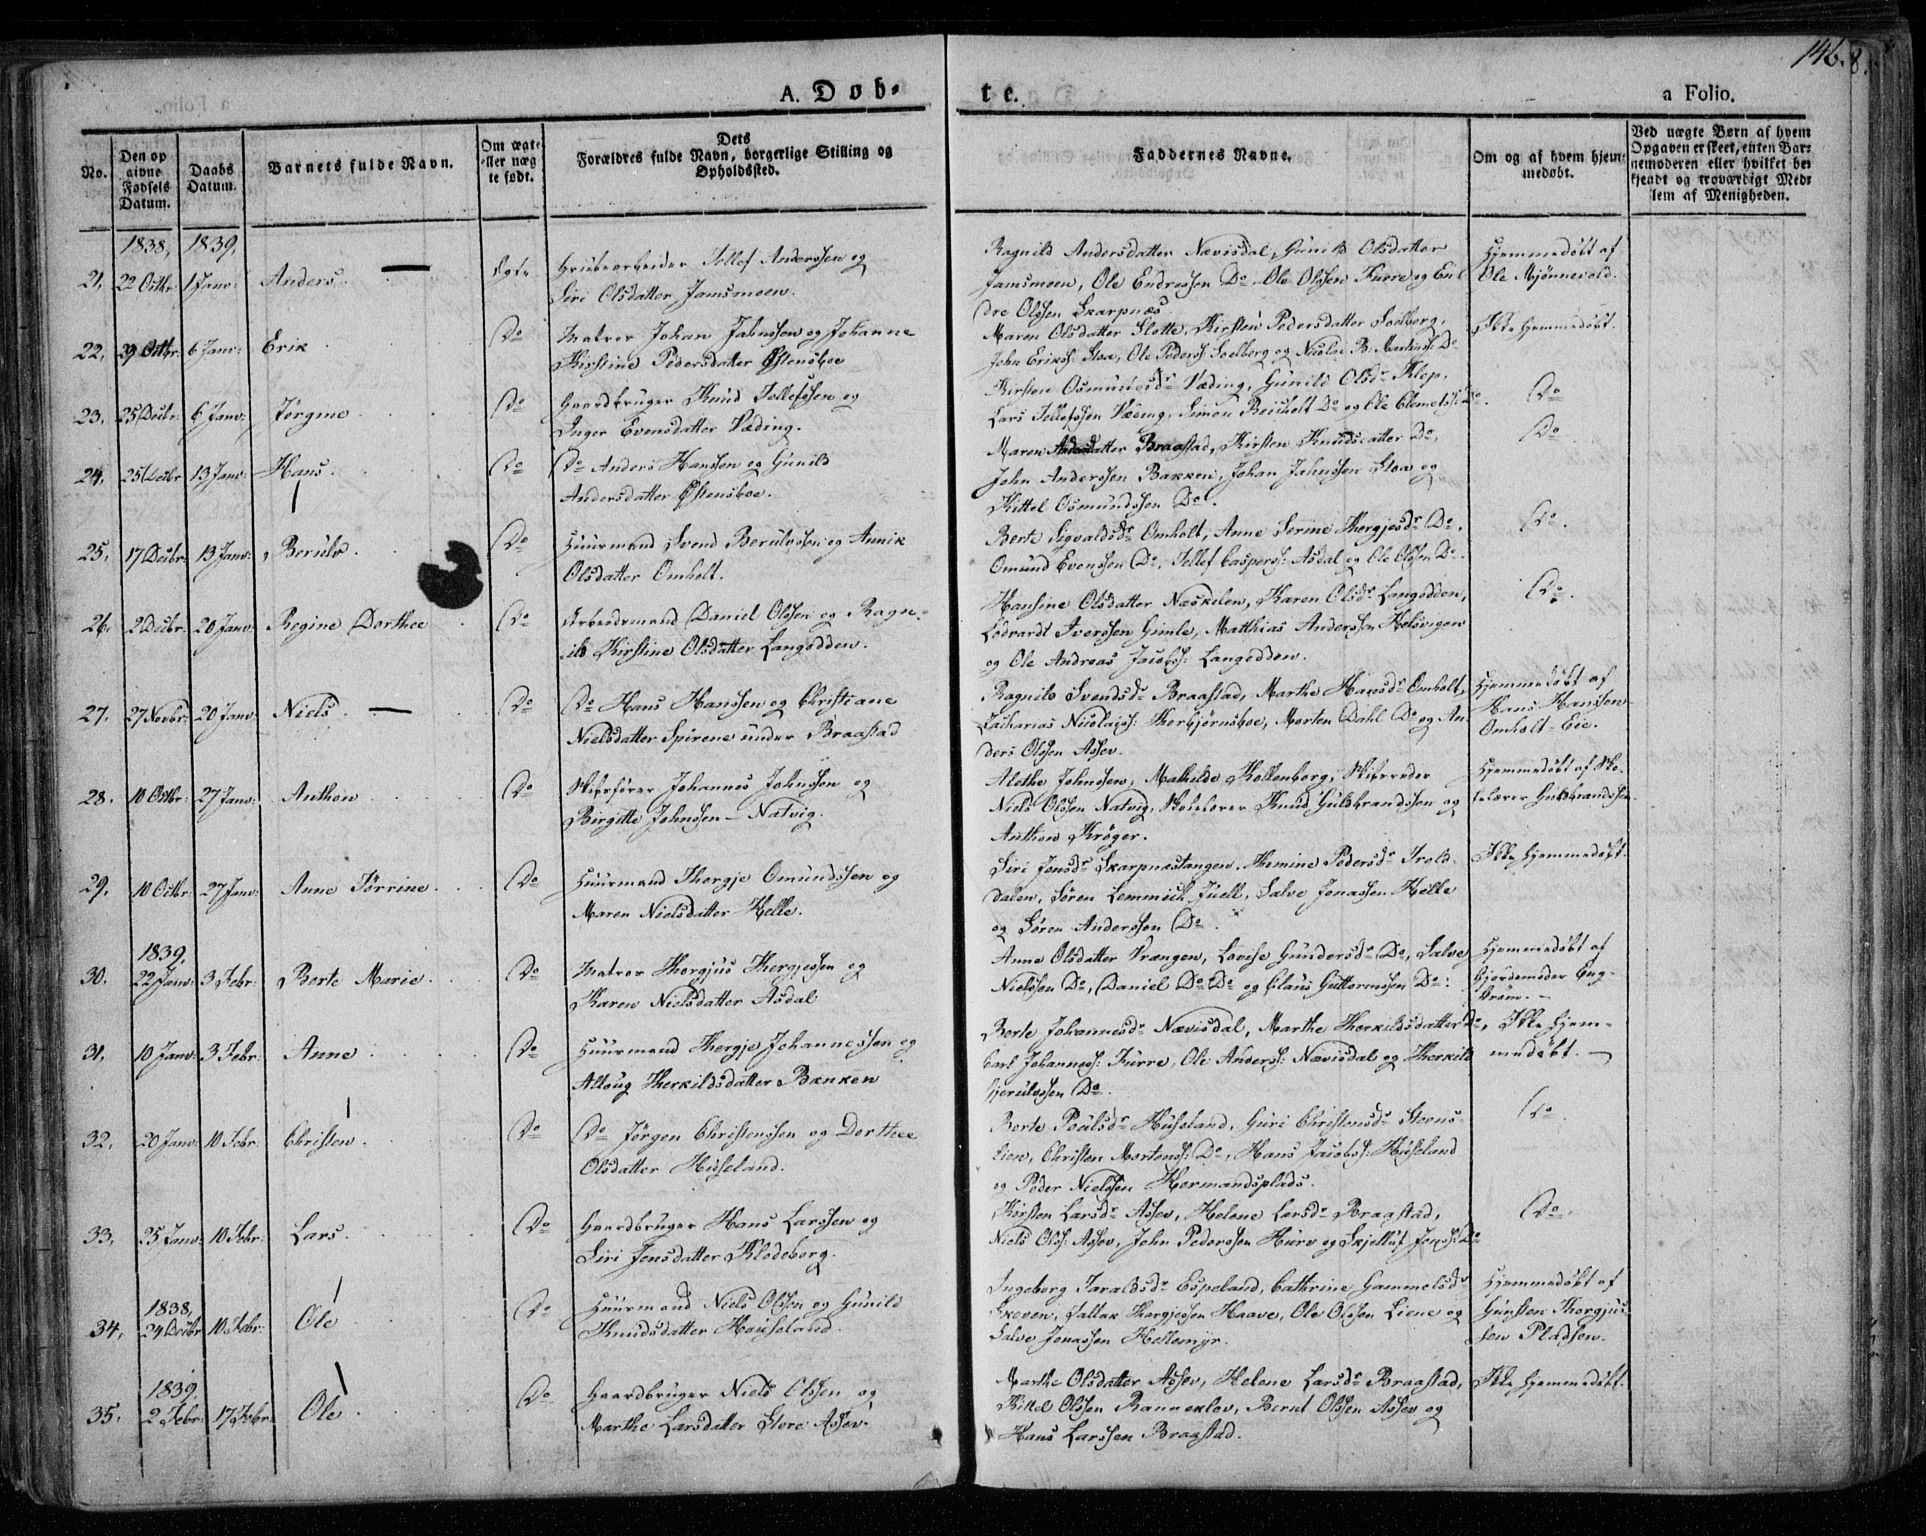 146.
8.
A. Døb-
te.
a Folio.
No.
Den op
givne
Fødsels
Datum.
Daabs
Datum.
Barnets fulde Navn.
Om ægte
eller uæg
te født.
Dets
Forældres fulde Navn, borgerlige Stilling og
Opholdssted.
Faddernes Navne.
Om og af hvem hjem=
medøbt.
Ved uægte Børn af hvem
Opgaven er skeet, enten Bar=
nemoderen eller hvilket be
kjendt og troværdigt Med=
lem af Menigheden.
1838, 1839,
21, 22 Octbr: 1 Janv: Anders. Ægte Grubearbeider Tellef Anderssen og
Siri Olsdatter Jamsmoen.
Ragnild Andersdatter Nævisdal, Gunild Olsdatter
Jamsmoen, Ole Endressen Do Ole Olssen Furre og En
dre Olssen Skarpnæs
Hjemmedøbt af
Ole Mjønnevold.
22, 29 Octbr: 6 Janv: Erik Do Matros Johan Jahnssen og Johanne
Kirstine Pedersdatter Østensboe
Maren Olsdatter Slotte, Kirsten Pedersdatter Soelberg,
John Erikss: Sloe, Ole Peders: Soelberg og Nicolai B: Martinss: Do
Ikke hjemmedøbt.
23. 25 Decbr: 6 Janv: Jørgine Do Gaardbruger Knud Tellefssen og
Inger Evensdatter Væding.
Kirsten Osmundsdr Væding, Gunild Olsdr Klep,
Lars Tellefssen Væding, Simon Bücholt Do og Ole Clemetss: Do.
Do
24. 25 Decbr 13 Janv: Hans. Do Do Anders Hanssen og Gunild
Andersdatter Østensboe.
Maren Andersdatter Braastad, Kirsten Knudsdatter Do,
John Anderssen Bakken, Johan Jahnssen Sloe og
Kittel Osmundssen Do.
Do
25. 17 Decbr: 13 Janv: Berulv Do Huurmand Svend Berulvssen og Annik
Olsdatter Omholt.
Berte Sigvaldsdr Omholt, Anne Serine Thergjesdr Do.
Omund Evenssen Do, Tellef Caspers: Asdal og Ole Olssen Do.
Do.
26. 2 Decbr: 20 Janv: Regine Dorthee Do Arbeidsmand Daniel Olssen og Ragn=
ild Kirstine Olsdatter Langødden.
Hansine Olsdatter Næskilen, Karen Olsdr Langødden,
Edvardt Iverssen Gimle, Matthias Anderssen Kelsvigen
og Ole Andreas Jacobss: Langødden.
Do.
27. 27 Novbr: 20 Janv: Niels. Do Do Hans Hanssen og Christiane
Nielsdatter Spirene under Braastad
Ragnild Svendsdr Braastad, Marthe Hansdr Omholt,
Zacharias Nicolaiss: Thorbjørnsboe, Morten Dahl Do og An
ders Olssen Assev.
Hjemmedøbt af
Hans Hanssen
Omholt=Eie.
28. 10 Octbr: 27 Janv: Anthon Do Skibsfører Johannes Johnssen og
Birgitte Johnssen - Natvig.
Alethe Johnssen, Mathilde Kallenborg, Skibsreder
Niels Olssen Natvig, Skolelærer Knud Guldbrandssen og
Anthon Krøger.
Hjemmedøbt af Sko=
lelærer Guldbrandssen.
29. 10 Octbr: 27 Janv: Anne Tørrine Do Huurmand Thergje Omundssen og
Maren Nielsdatter Helle.
Siri Jensdr Skarpnæstangen, Themine Pedersdr Trold=
dalen, Søren Lemmich Juell, Salve Jonassen Helle
og Søren Anderssen Do.
Ikke hjemmedøbt.
1839,
30. 22 Janv: 3 Febr: Berte Marie. Do Matros Thorgjus Thergjessen og
Karen Nielsdatter Asdal
Anne Olsdatter Vrængen, Lovise Gundersdr Do, Salve
Nielssen Do, Daniel Do Do og Claus Guttormssen Do:
Hjemmedøbt af
Gjordemoder Eng=
strøm. -
31. 10 Janv: 3 Febr: Anne Do Huurmand Thergje Johannessen og
Alloug Therkildsdatter Bænken
Berte Johannesdr Nævisdal, Marthe Therkildsdatter Do,
Carl Johanness: Furre, Ole Anderss: Nævisdal og Therkild
Gjerulvssen Do.
Ikke hjem=
medøbt. -
32. 20 Janv: 10 Febr: Christen Do Do Jørgen Christenssen og Dorthee
Olsdatter Huseland.
Berte Poulsdr Huseland, Guri Christensdr Steens=
lien, Christen Mortenss: Do, Hans Jacobss: Huseland
og Peder Nielssen Hermandsplads.
Do.
33, 25 Janv: 10 Febr: Lars. Do Gaardbruger Hans Larssen og
Siri Jensdatter Klodeborg.
Kirsten Larsdr Assev, Helene Larsdr Braastad,
Niels Olss: Assev, John Pederssen Hurv og Skjellus Jenss: Do
Do.
1838,
34, 24 Decbr 10 Febr: Ole Do Huurmand Niels Olssen og Gunild
Knudsdatter Hauseland.
Ingeborg Taraldsdr Espeland, Cathrine Gammelsdr
Skoven, Tallak Thergjessen Haave, Ole Olssen Liene og
Salve Jonassen Hellemyr.
Hjemmedøbt af
Gunsten Thorgjus=
sen Pladsen.
1839.
35. 2 Febr: 17 Febr: Ole Do Gaardbruger Niels Olssen og
Marthe Larsdatter Store Assev.
Marthe Olsdatter Assev, Helene Larsdr Braastad,
Kittel Olssen Ranneklev, Bernt Olssen Assev og
Hans Larssen Braastad.
Ikke hjemmedøbt.